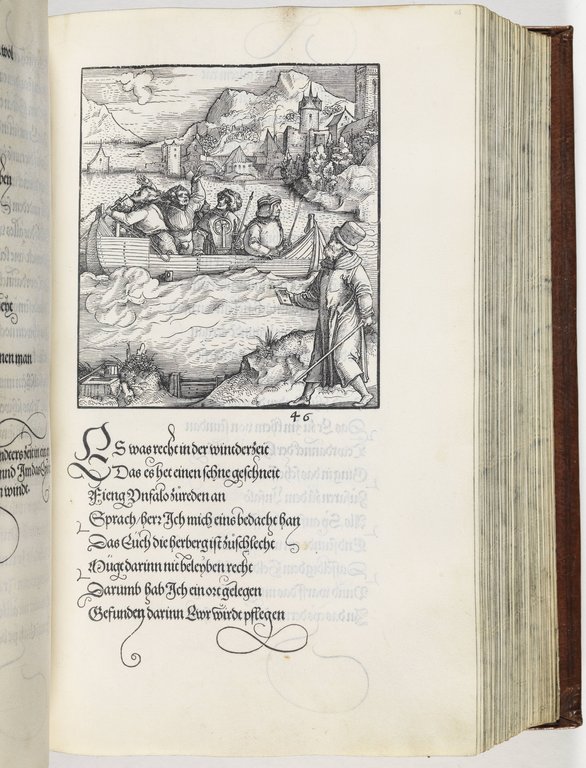 wol
ben
nen man
46
ES was recht in der wintterzeit
Das es het einen schne geschneit
Fieng Vnfalo zů reden an
Sprach herr Ich mich eins bedacht han
Das Euch die herberg ist zů schlecht
Můgt darinn nit beleyben recht
Darumb hab Ich ein ort gelegen
Gefunden darinn Ewr wirdt pflegen